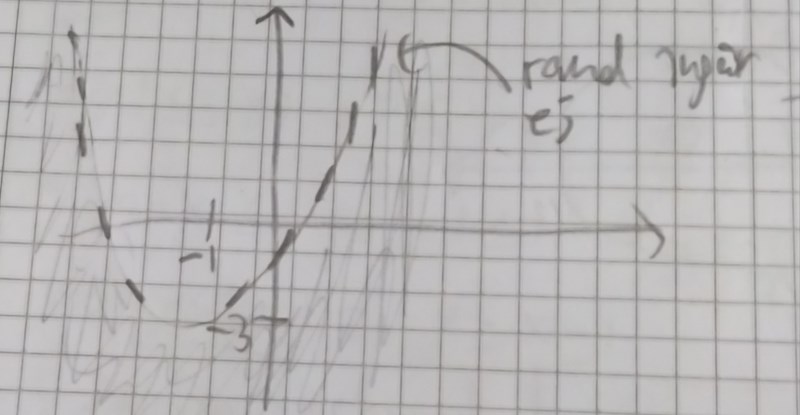 rand ingår
ej
-1
-3